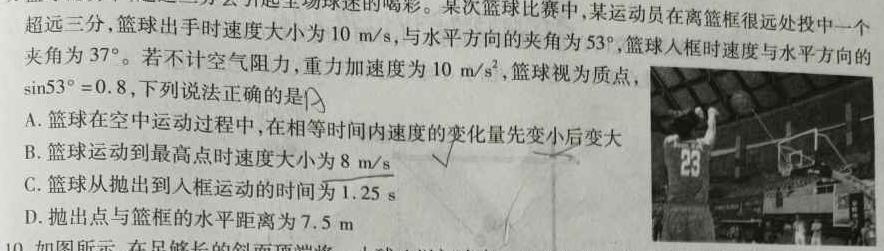 起全场球迷的喝彩。某次篮球比赛中,某运动员在离篮框很远处投中一个
超远三分,篮球出手时速度大小为 10 m/s,与水平方向的夹角为 53°,篮球入框时速度与水平方向的
夹角为 37°。若不计空气阻力,重力加速度为 10 m/s²,篮球视为质点,
sin53°=0.8,下列说法正确的是
A. 篮球在空中运动过程中,在相等时间内速度的变化量先变小后变大
B. 篮球运动到最高点时速度大小为 8 m/s
C. 篮球从抛出到入框运动的时间为 1.25 s
D. 抛出点与篮框的水平距离为 7.5 m
23
10. 如图所示,在足够长的斜面顶端将